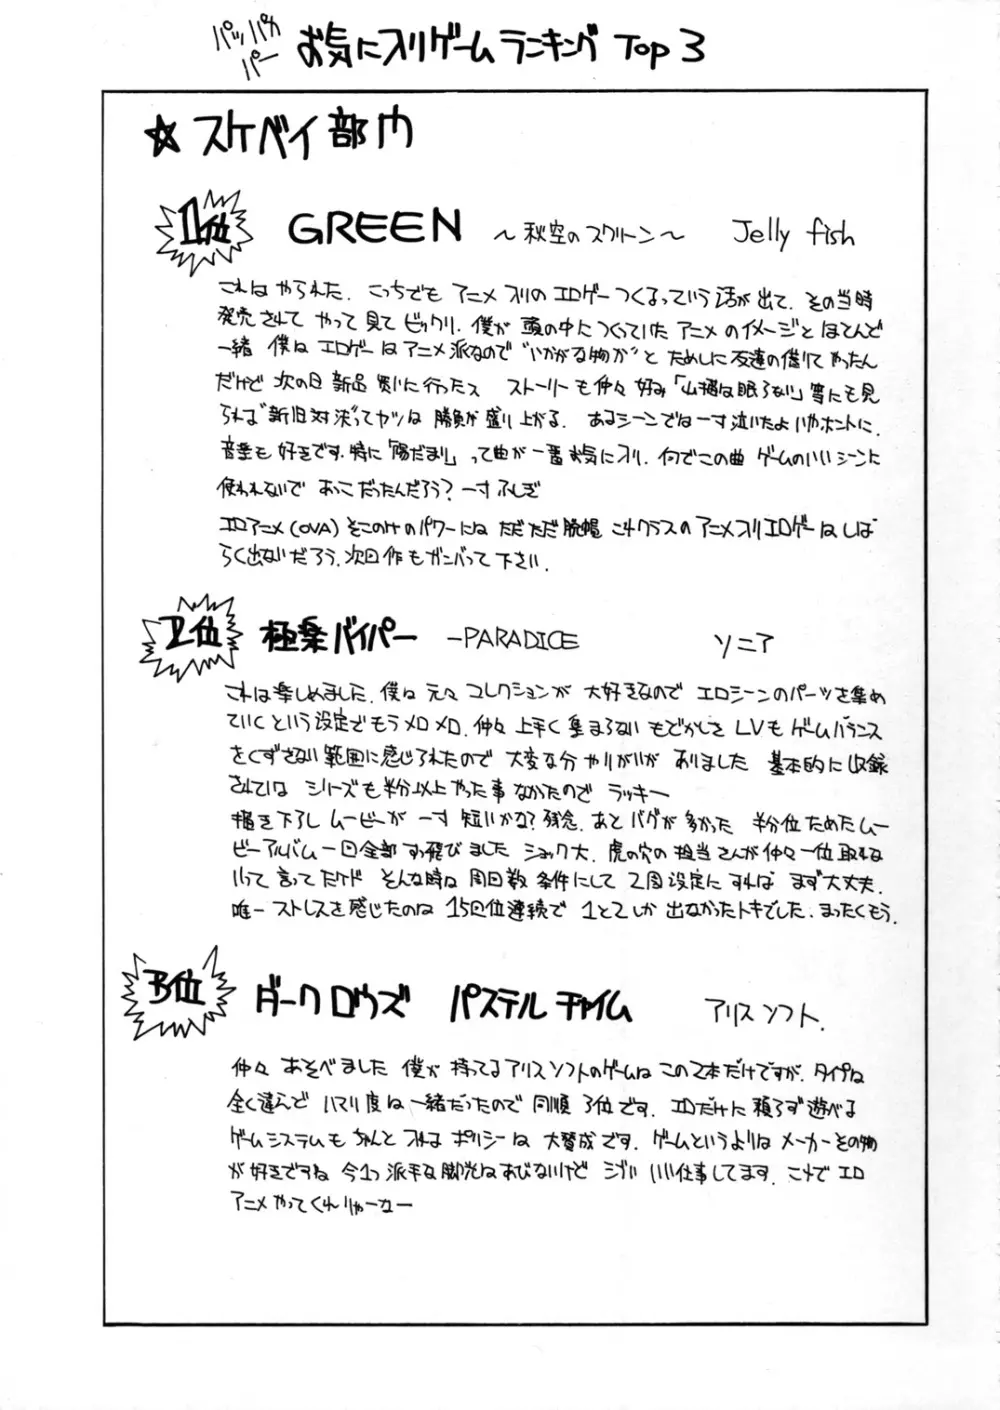 パッパカパー お気に入りゲームランキング Top 3
☆スケベイ部門
1位 GREEN ～秋空のスクリーン～ Jelly fish
これは やられた. こっちでも アニメ入りの エロゲー つくるっていう 話が出て. その当時
発売されて やって見て ビックリ. 僕が 頭の中に つくっていた アニメのイメージと ほとんど
一緒 僕は エロゲーは アニメ派なので "いかがな物か"と ためしに 友達の借りて やったん
だけど 次の日 新品 買いに行ったス ストーリーも 仲々 好み 「山猫は眠らない」等にも見
られる "新旧対決"ってヤツは 勝負が 盛り上がる. あるシーンでは 一寸 泣いたよ いやホントに.
音楽も 好きです. 特に「陽だまり」って曲が 一番 お気に入り. 何でこの曲 ゲームのいいシーンに
使われないで あっこだったんだろう? 一寸 ふしぎ
エロアニメ(OVA) そこのけのパワーには ただただ 脱帽 これクラスの アニメ入り エロゲーは しば
らく出ないだろう. 次回作も ガンバって 下さい.
2位 極楽バイパー －PARADICE ソニア
これは 楽しめました. 僕は 元々 コレクションが 大好きなので エロシーンのパーツを集め
ていく という 設定で もう メロメロ. 仲々 上手く 集まらない もどかしさ LVも ゲームバランス
をくずさない 範囲に感じられたので 大変な分 やりがいが ありました 基本的に 収録
されている シリーズも 半分以上 やった事 なかったので ラッキー
描き下ろし ムービーが 一寸 短いかな? 残念. あと バグが 多かった 半分位 ためた ムー
ビーアルバム 一回全部 すっ飛びました ショック大. 虎の穴の 担当さんが 仲々 一位 取れな
いって 言ってたケド そんな時は 周回数 条件にして 2周 設定に すれば まず 大丈夫.
唯一 ストレスを感じたのは 15回位 連続で 1と2しか 出なかったトキでした. まったくもう.
3位 ダークロウズ パステルチャイム アリスソフト.
仲々 あそべました 僕が 持ってるアリスソフトのゲームは この2本だけですが. タイプは
全く違んで ハマリ度は 一緒だったので 同順 3位です. エロだけに 頼らず 遊べる
ゲームシステムも ちゃんと 入れる ポリシーは 大賛成です. ゲームというよりは メーカーその物
が 好きですね 今1つ 派手な 脚光は あびないけど シブい いい仕事してます. これで エロ
アニメ やってくれりゃーなー